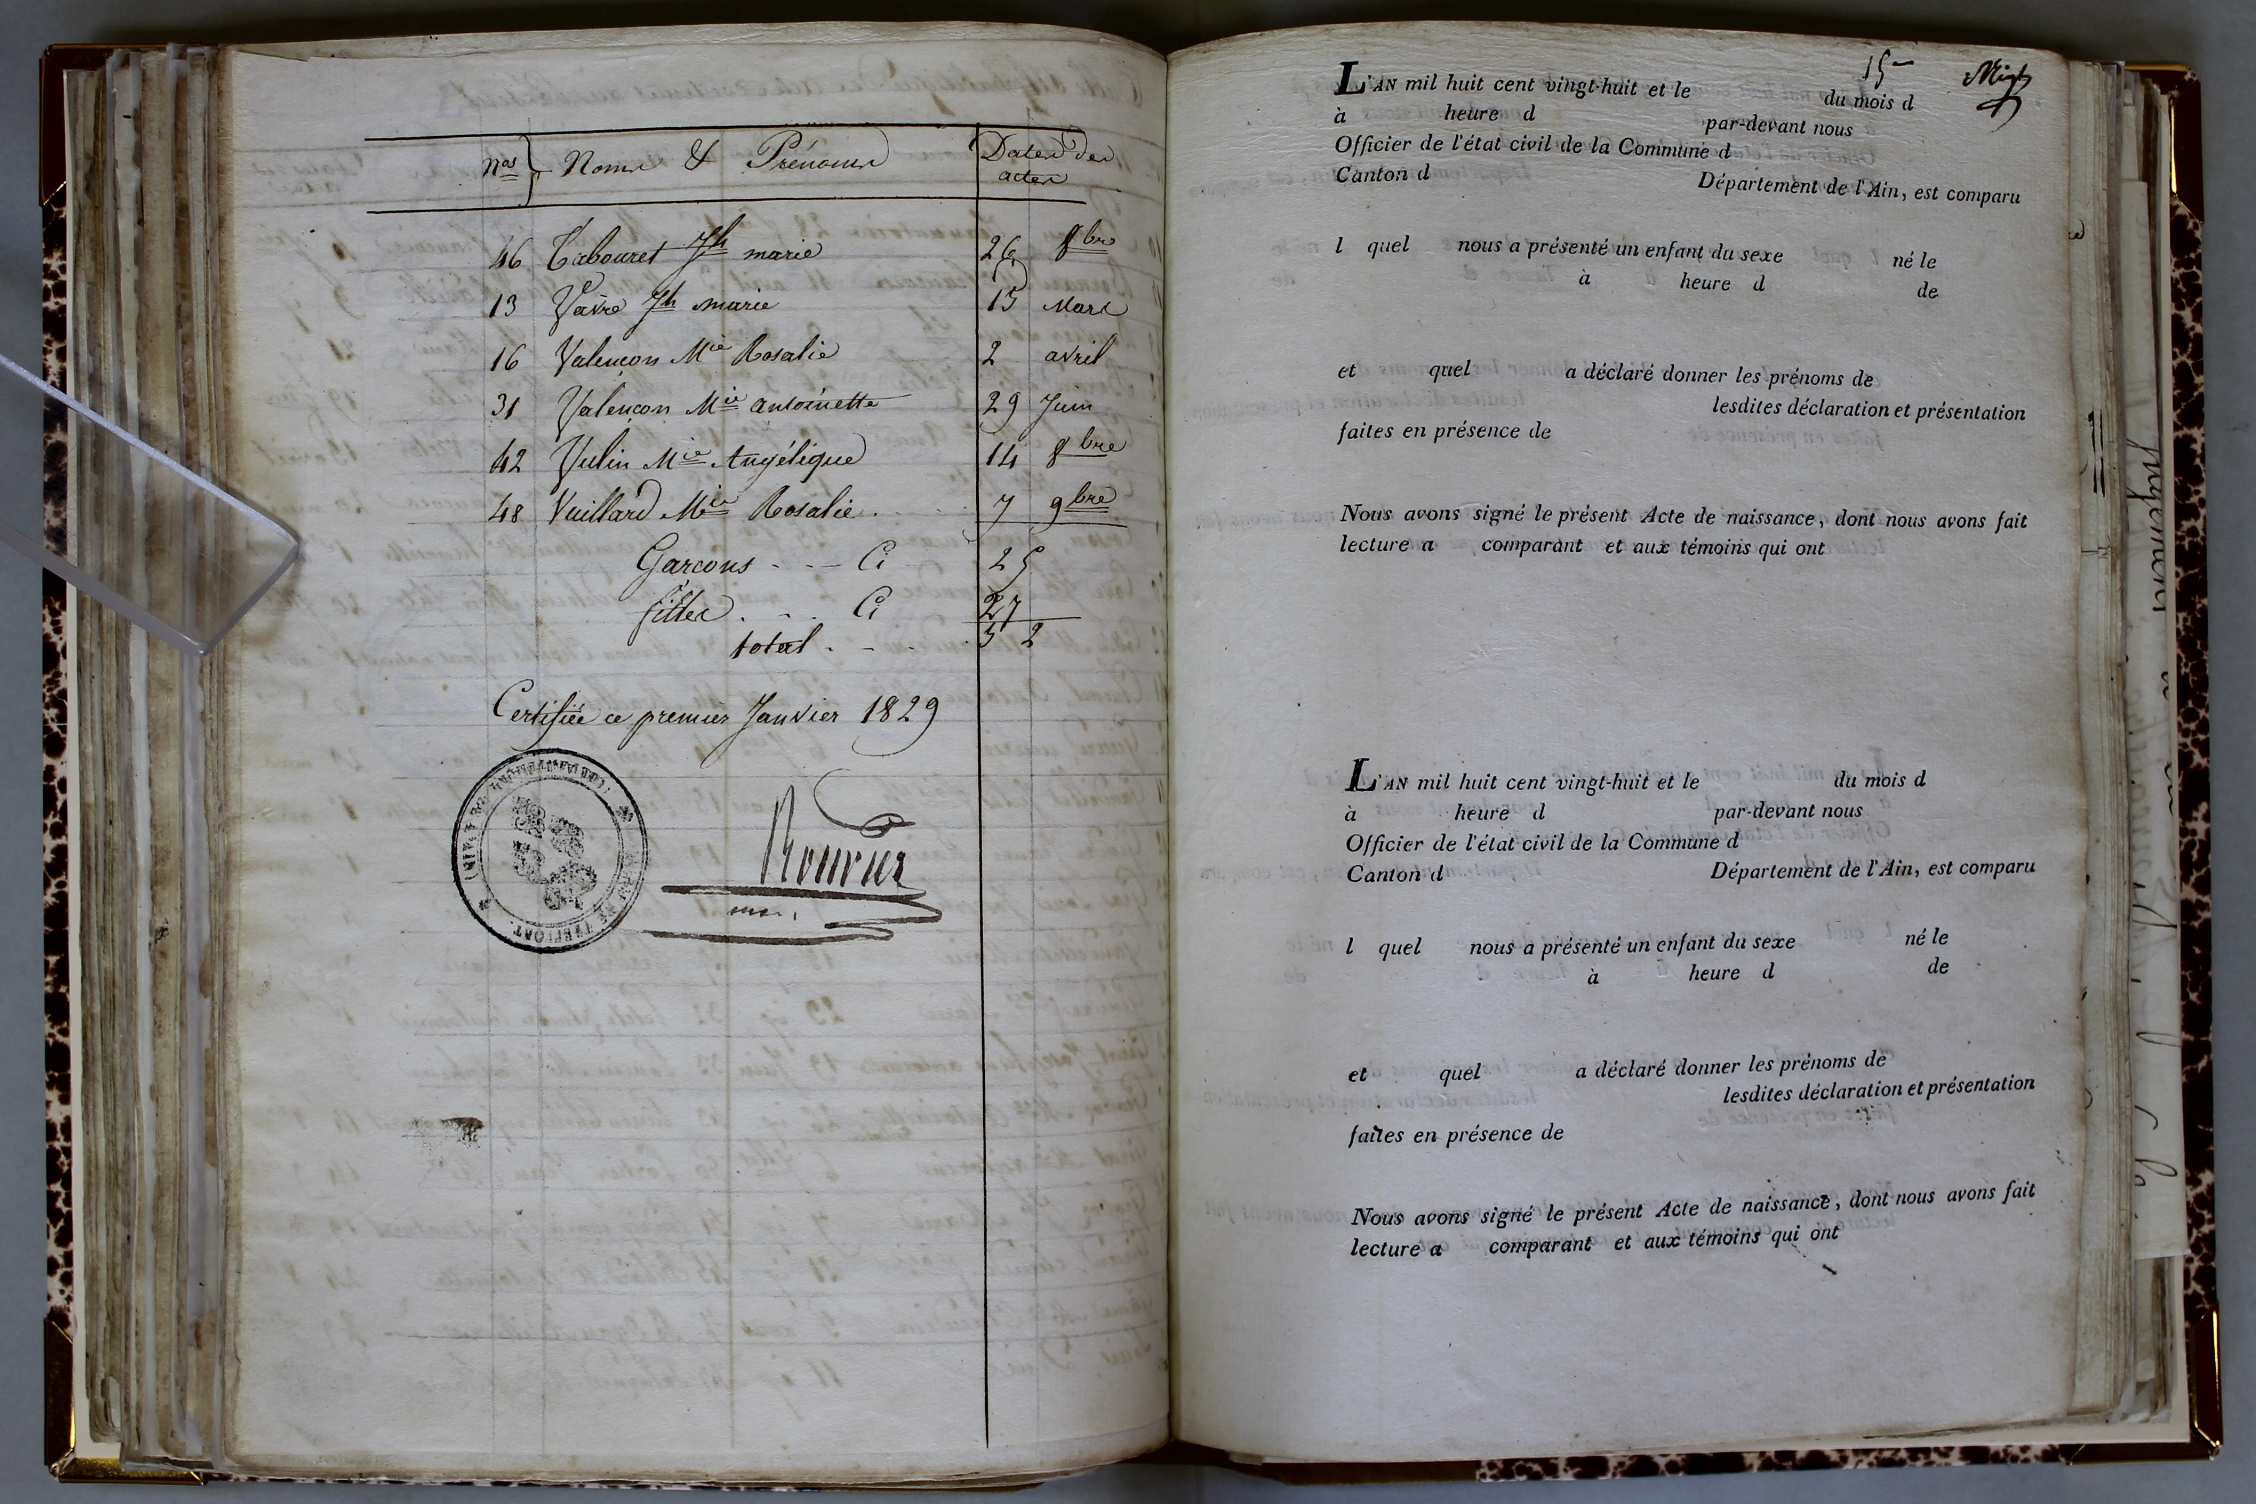 nos Noms & Prénoms Dates des
actes
46 Tabouret Jh marie 26 8bre
13 Vavre Jh marie 15 Mars
16 Valençon Mie Rosalie 2 avril
31 Valençon Mie antoinette 29 Juin
42 Vulin Mie Angélique 14 8bre
48 Vuillard Mie Rosalie . . . . 7 9bre
Garcons - - - Ci 25
filles . - . . Ci 27
total . - - . 52
Certifiée ce premier Janvier 1829
TREFFORT
Rouvier
15
L'AN mil huit cent vingt-huit et le du mois d
à heure d par-devant nous
Officier de l'état civil de la Commune d
Canton d Département de l'Ain, est comparu
l quel nous a présenté un enfant du sexe né le
à heure d de
et quel a déclaré donner les prénoms de
lesdites déclaration et présentation
faites en présence de
Nous avons signé le présent Acte de naissance, dont nous avons fait
lecture a comparant et aux témoins qui ont
L'AN mil huit cent vingt-huit et le du mois d
à heure d par-devant nous
Officier de l'état civil de la Commune d
Canton d Département de l'Ain, est comparu
l quel nous a présenté un enfant du sexe né le
à heure d de
et quel a déclaré donner les prénoms de
lesdites déclaration et présentation
faites en présence de
Nous avons signé le présent Acte de naissance, dont nous avons fait
lecture a comparant et aux témoins qui ont